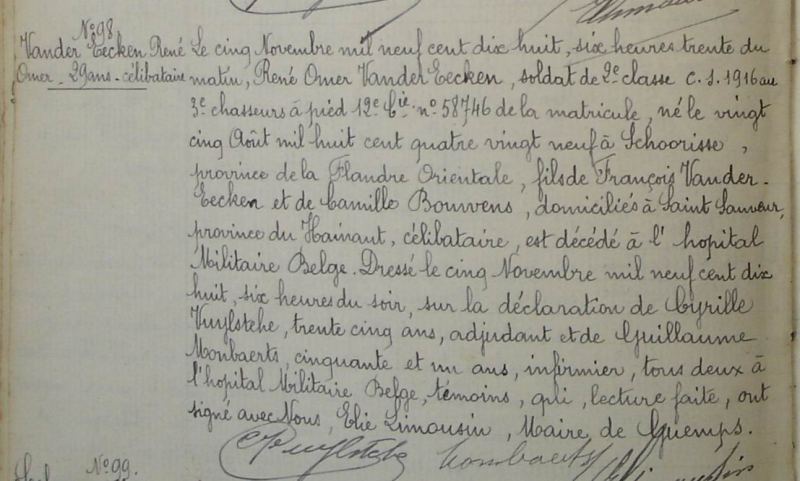 Nº 98
Vander Eecken René
Omer - 29 ans - célibataire
Le cinq Novembre mil neuf cent dix huit, six heures trente du
matin, René Omer Vander Eecken, soldat de 2e classe c. s. 1916 au
3e chasseurs à pied 12e Cie nº 58746 de la matricule, né le vingt
cinq Août mil huit cent quatre vingt neuf à Schoorisse,
province de la Flandre Orientale, fils de François Vander-
Eecken et de Camille Bouvens, domiciliés à Saint Sauveur,
province du Hainaut, célibataire, est décédé à l'hopital
Militaire Belge. Dressé le cinq Novembre mil neuf cent dix
huit, six heures du soir, sur la déclaration de Cyrille
Vuylsteke, trente cinq ans, adjudant et de Guillaume
Monbaerts, cinquante et un ans, infirmier, tous deux à
l'hopital Militaire Belge, témoins, qui, lecture faite, ont
signé avec Nous, Elie Limousin, Maire de Guemps.
C Vuylsteke Monbaerts Limousin
Nº 99.